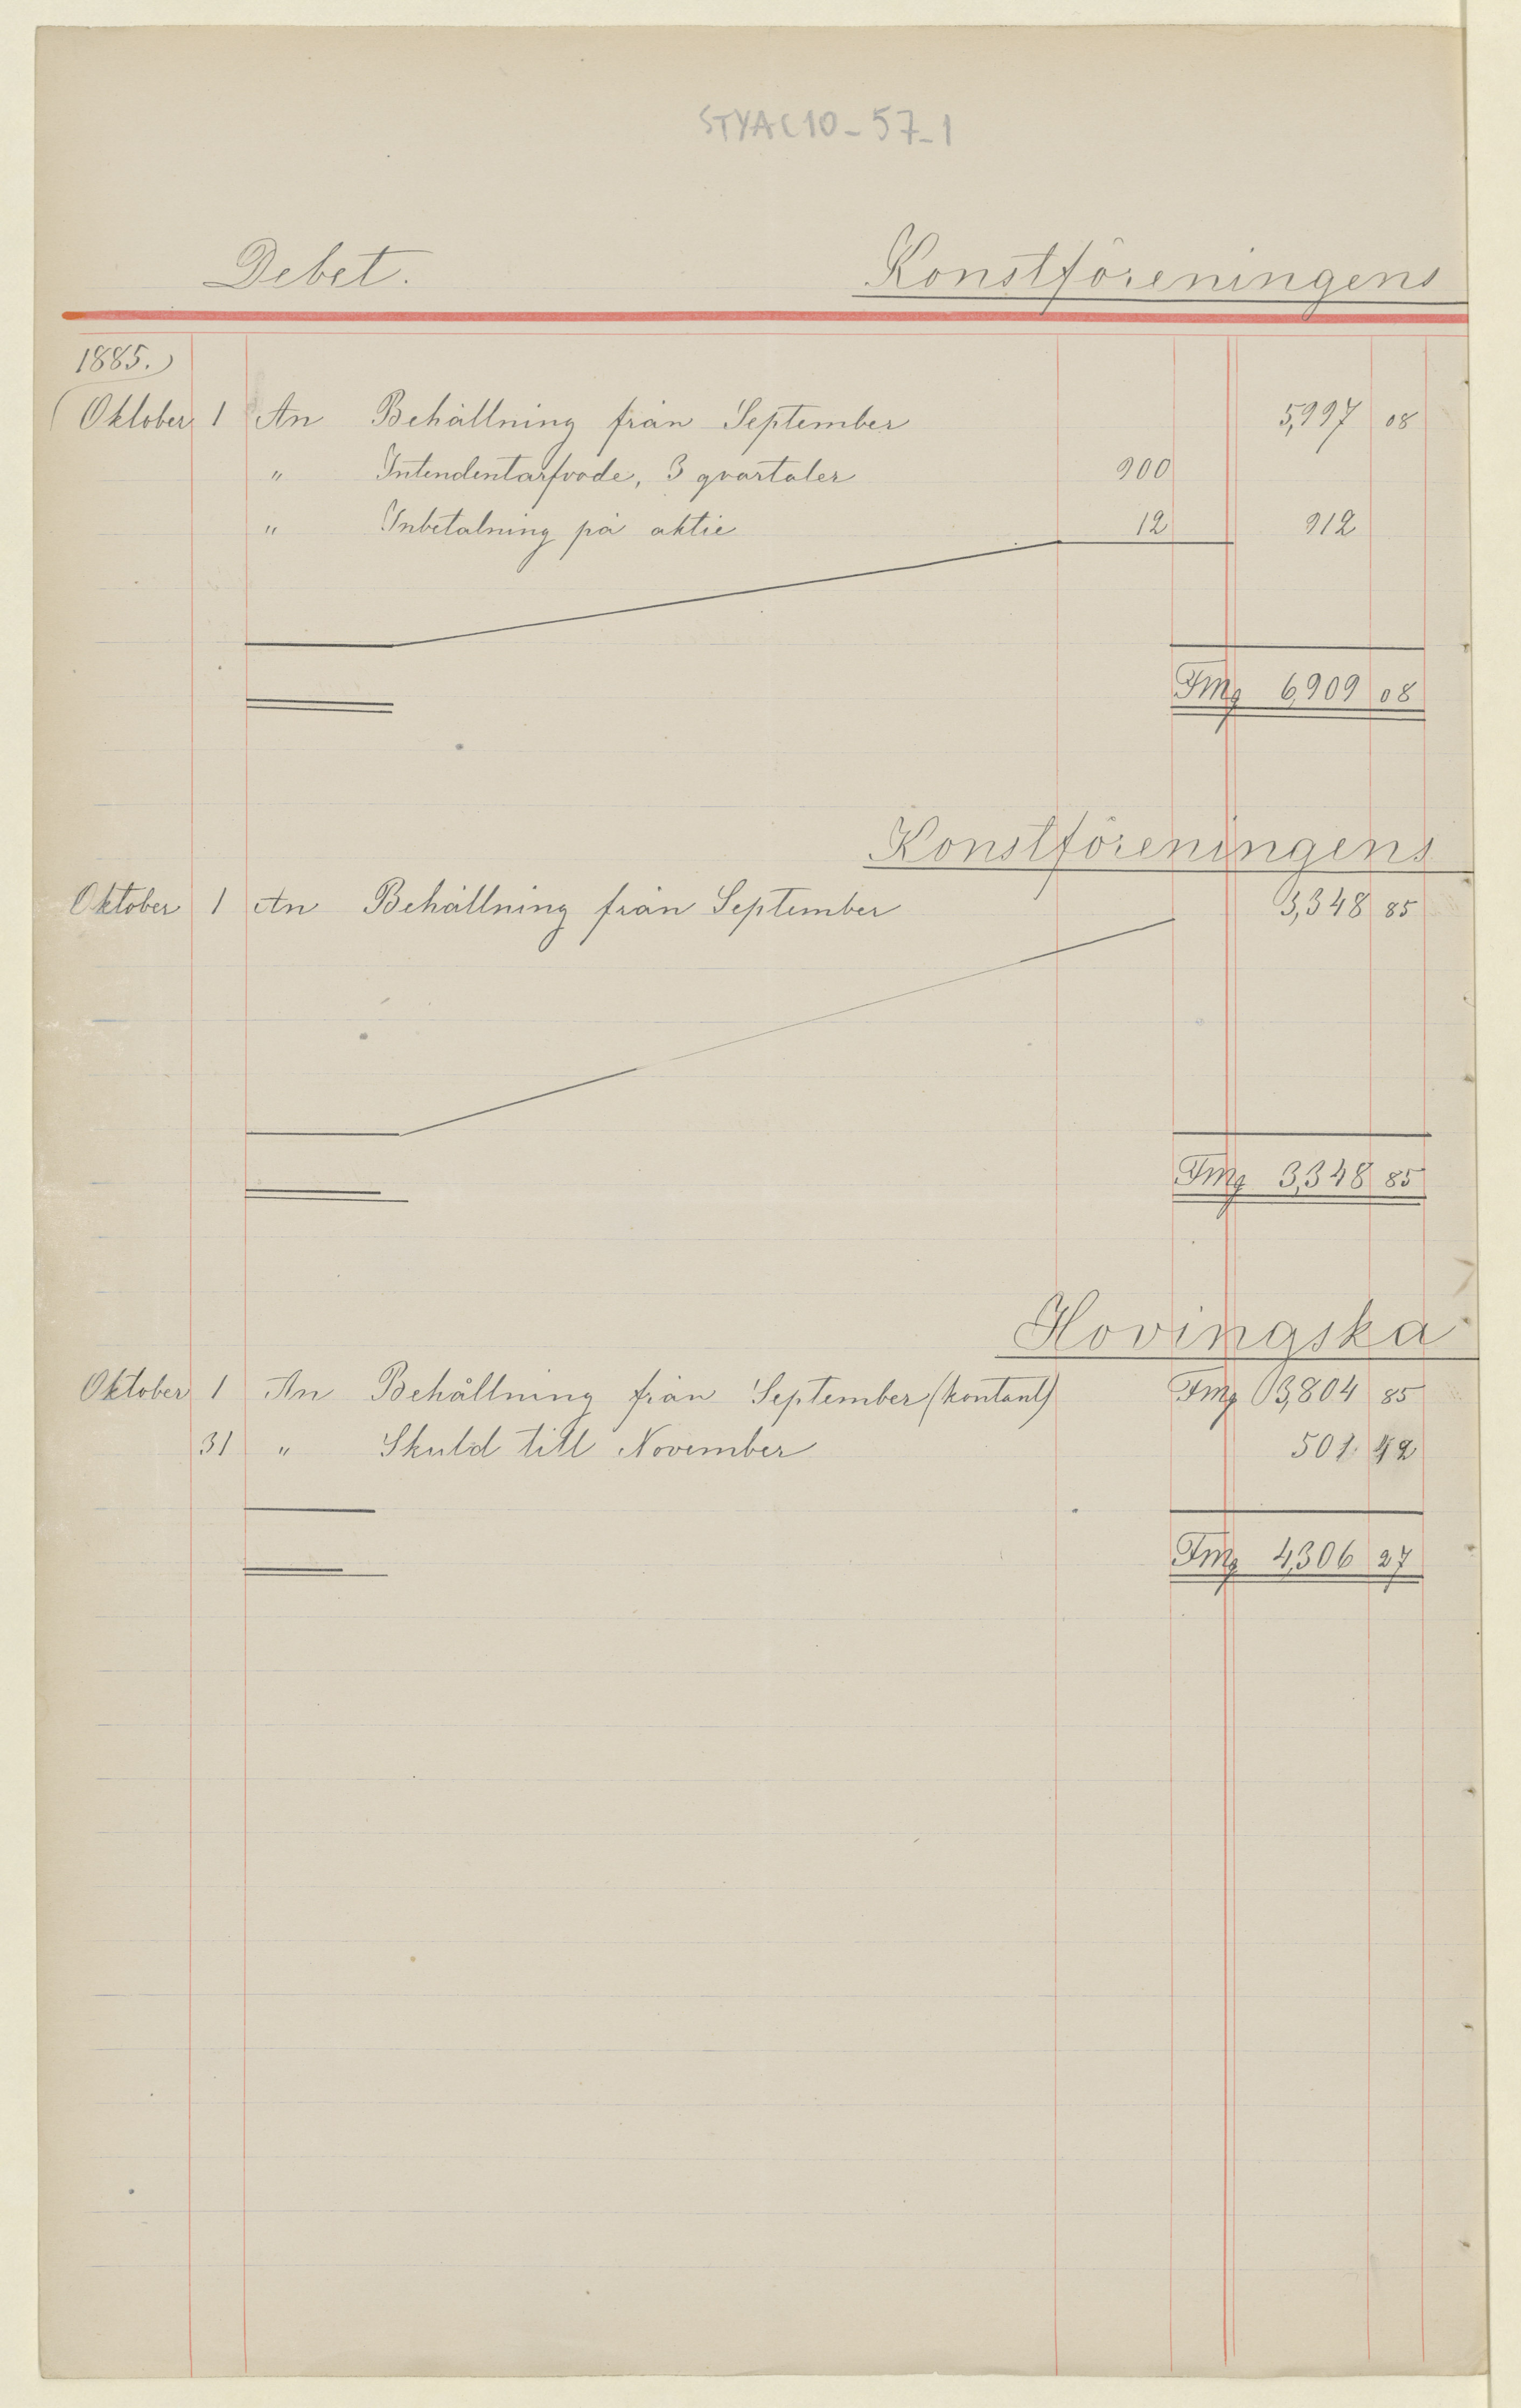 STYAC10-57-1
Debet. Konstföreningens
1885.
Oktober 1 An Behållning från September 5,997 08
" Intendentarfvode, 3 qvartaler 900
" Inbetalning på aktie 12 912
Fmg 6,909 08
Konstföreningens
Oktober 1 An Behållning från September 3,348 85
Fmg 3,348 85
Hovingska
Oktober 1 An Behållning från September (kontant) Fmg 3,804 85
31 " Skuld till November 501 42
Fmg 4,306 27